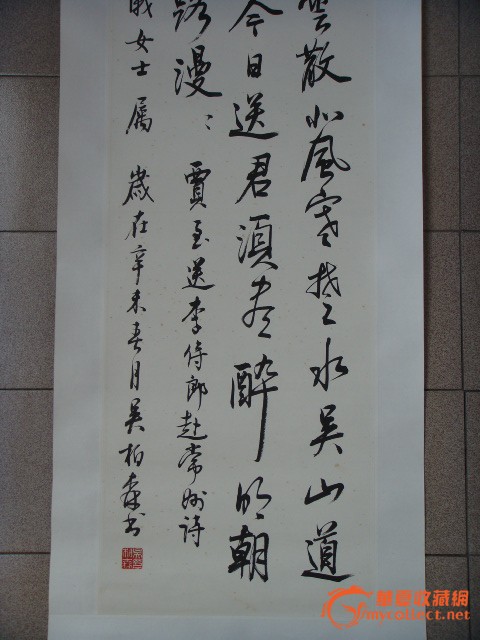 雲散北風寒楚水吳山道
今日送君須盡醉明朝
路漫〻 賈至送李侍郎赴常州詩
女士屬 歲在辛未春月吳柏森書
華夏收藏網
mycollect.net